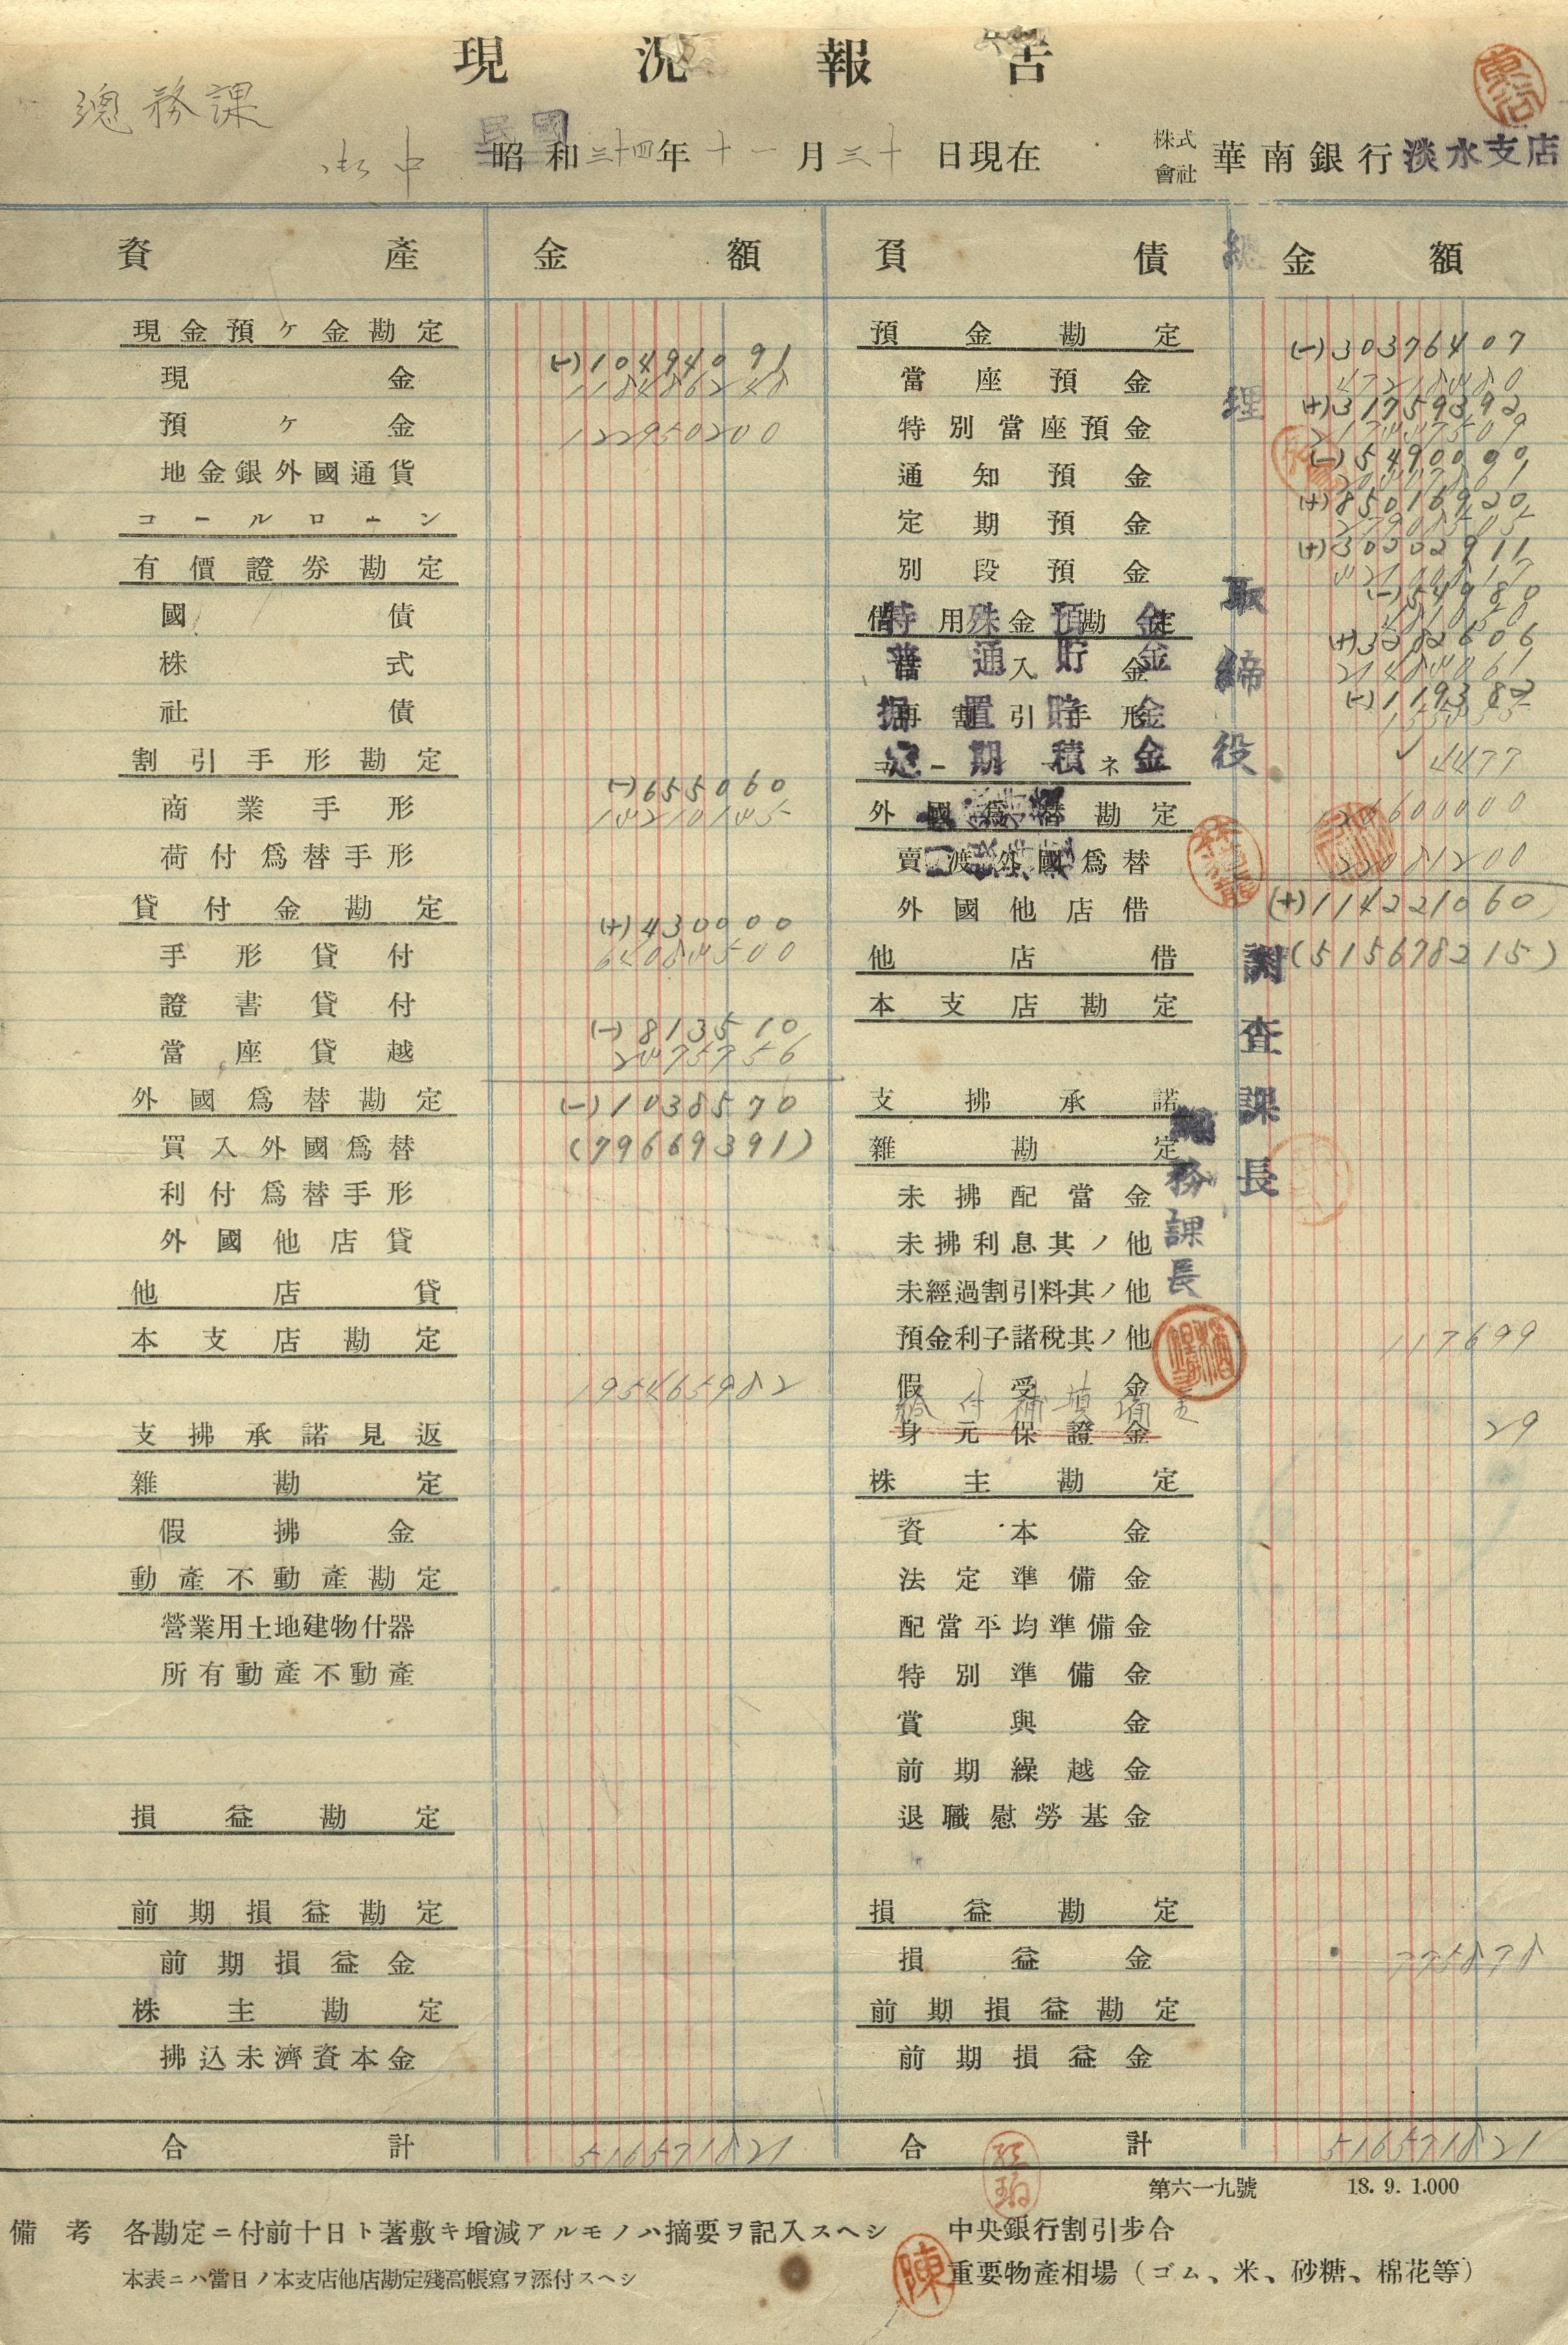 現況報告
總務課 御中
民國
昭和三十四年十一月三十日現在
株式會社 華南銀行淡水支店
資產 金額 負債 金額
總理
取締役
調查課長
總務課長
現金預ケ金勘定
現金 (-)10494091
118486248
預ケ金 122950200
地金銀外國通貨
コールローン
有價證券勘定
國債
株式
社債
割引手形勘定
商業手形 (-)655060
14210145
荷付爲替手形
貸付金勘定
手形貸付 (+)430000
證書貸付
當座貸越 (-)813510
2475756
外國爲替勘定 (-)1038570
買入外國爲替 (79669391)
利付爲替手形
外國他店貸
他店貸
本支店勘定
195465982
支拂承諾見返
雜勘定
假拂金
動產不動產勘定
營業用土地建物什器
所有動產不動產
損益勘定
前期損益勘定
前期損益金
株主勘定
拂込未濟資本金
合計 516571821
預金勘定 (-)30376407
當座預金
(+)31759392
特別當座預金
(-)5490000
通知預金
(+)85016920
定期預金
(+)30202911
別段預金
(-)54980
借用金勘定
特殊預金
(+)3282606
借入金
普通貯金
(-)119382
再割引手形
据置貯金
4477
定期積金
外國爲替勘定 600000
賣渡外國爲替
外國他店借 (+)114221060
他店借 (515678215)
本支店勘定
支拂承諾
雜勘定
未拂配當金
未拂利息其ノ他
未經過割引料其ノ他
預金利子諸稅其ノ他 117699
假受金
給付補填備金
身元保證金 29
株主勘定
資本金
法定準備金
配當平均準備金
特別準備金
賞與金
前期繰越金
退職慰勞基金
損益勘定
損益金 775878
前期損益勘定
前期損益金
合計 516571821
第六一九號 18.9.1.000
備考 各勘定ニ付前十日ト著敷キ增減アルモノハ摘要ヲ記入スヘシ
本表ニハ當日ノ本支店他店勘定殘高帳寫ヲ添付スヘシ
中央銀行割引步合
陳
重要物產相場（ゴム、米、砂糖、棉花等）